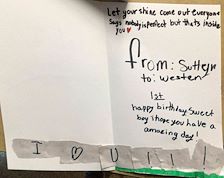 Let your shine come out everyone
says nobody is perfect but thats inside
you ♥
from: Sutton
to: Westen
1st
happy birthday sweet
boy i hope you have a
amazing day!
I ♡ U ! ! !